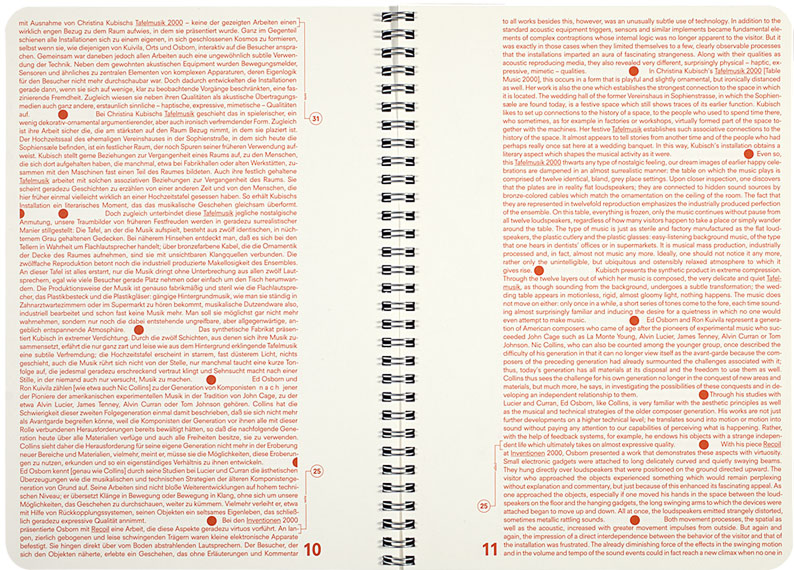 mit Ausnahme von Christina Kubischs Tafelmusik 2000 – keine der gezeigten Arbeiten einen
wirklich engen Bezug zu dem Raum aufwies, in dem sie präsentiert wurde. Ganz im Gegenteil
schienen alle Installationen sich zu einem eigenen, in sich geschlossenen Kosmos zu formieren,
selbst wenn sie, wie diejenigen von Kuivila, Orts und Osborn, interaktiv auf die Besucher anspra-
chen. Gemeinsam war daneben jedoch allen Arbeiten auch eine ungewöhnlich subtile Verwen-
dung der Technik. Neben dem gewohnten akustischen Equipment wurden Bewegungsmelder,
Sensoren und ähnliches zu zentralen Elementen von komplexen Apparaturen, deren Eigenlogik
für den Besucher nicht mehr durchschaubar war. Doch dadurch entwickelten die Installationen
gerade dann, wenn sie sich auf wenige, klar zu beobachtende Vorgänge beschränkten, eine fas-
zinierende Fremdheit. Zugleich wiesen sie neben ihren Qualitäten als akustische Übertragungs-
medien auch ganz andere, erstaunlich sinnliche – haptische, expressive, mimetische – Qualitäten
auf. Bei Christina Kubischs Tafelmusik geschieht das in spielerischer, ein
wenig dekorativ-ornamental argumentierender, aber auch ironisch verfremdender Form. Zugleich
ist ihre Arbeit sicher die, die am stärksten auf den Raum Bezug nimmt, in dem sie plaziert ist.
Der Hochzeitssaal des ehemaligen Vereinshauses in der Sophienstraße, in dem sich heute die
Sophiensæle befinden, ist ein festlicher Raum, der noch Spuren seiner früheren Verwendung auf-
weist. Kubisch stellt gerne Beziehungen zur Vergangenheit eines Raums auf, zu den Menschen,
die sich dort aufgehalten haben, die manchmal, etwa bei Fabrikhallen oder alten Werkstätten, zu-
sammen mit den Maschinen fast einen Teil des Raumes bildeten. Auch ihre festlich gehaltene
Tafelmusik arbeitet mit solchen assoziativen Beziehungen zur Vergangenheit des Raums. Sie
scheint geradezu Geschichten zu erzählen von einer anderen Zeit und von den Menschen, die
hier früher einmal vielleicht wirklich an einer Hochzeitstafel gesessen haben. So erhält Kubischs
Installation ein literarisches Moment, das das musikalische Geschehen gleichsam überformt.
Doch zugleich unterbindet diese Tafelmusik jegliche nostalgische
Anmutung, unsere Traumbilder von früheren Festfreuden werden in geradezu surrealistischer
Manier stillgestellt: Die Tafel, an der die Musik aufspielt, besteht aus zwölf identischen, in nüch-
ternem Grau gehaltenen Gedecken. Bei näherem Hinsehen entdeckt man, daß es sich bei den
Tellern in Wahrheit um Flachlautsprecher handelt; über bronzefarbene Kabel, die die Ornamentik
der Decke des Raumes aufnehmen, sind sie mit unsichtbaren Klangquellen verbunden. Die
zwölffache Reproduktion betont noch die industriell produzierte Makellosigkeit des Ensembles.
An dieser Tafel ist alles erstarrt, nur die Musik dringt ohne Unterbrechung aus allen zwölf Laut-
sprechern, egal wie viele Besucher gerade Platz nehmen oder einfach um den Tisch herumwan-
dern. Die Produktionsweise der Musik ist genauso fabrikmäßig und steril wie die Flachlautspre-
cher, das Plastikbesteck und die Plastikgläser: gängige Hintergrundmusik, wie man sie ständig in
Zahnarztwartezimmern oder im Supermarkt zu hören bekommt, musikalische Dutzendware also,
industriell bearbeitet und schon fast keine Musik mehr. Man soll sie möglichst gar nicht mehr
wahrnehmen, sondern nur noch die dabei entstehende ungreifbare, aber allgegenwärtige, an-
geblich entspannende Atmosphäre. Das synthetische Fabrikat präsen-
tiert Kubisch in extremer Verdichtung. Durch die zwölf Schichten, aus denen sich ihre Musik zu-
sammensetzt, erfährt die nur ganz zart und leise wie aus dem Hintergrund erklingende Tafelmusik
eine subtile Verfremdung; die Hochzeitstafel erscheint in starrem, fast düsterem Licht, nichts
geschieht, auch die Musik rührt sich nicht von der Stelle, nur manchmal taucht eine kurze Ton-
folge auf, die jedesmal geradezu erschreckend vertraut klingt und Sehnsucht macht nach einer
Stille, in der niemand auch nur versucht, Musik zu machen. Ed Osborn und
Ron Kuivila zählen [wie etwa auch Nic Collins] zu der Generation von Komponisten nach jener
der Pioniere der amerikanischen experimentellen Musik in der Tradition von John Cage, zu der
etwa Alvin Lucier, James Tenney, Alvin Curran oder Tom Johnson gehören. Collins hat die
Schwierigkeit dieser zweiten Folgegeneration einmal damit beschrieben, daß sie sich nicht mehr
als Avantgarde begreifen könne, weil die Komponisten der Generation vor ihnen alle mit dieser
Rolle verbundenen Herausforderungen bereits bewältigt hätten, so daß die nachfolgende Gene-
ration heute über alle Materialien verfüge und auch alle Freiheiten besitze, sie zu verwenden.
Collins sieht daher die Herausforderung für seine eigene Generation nicht mehr in der Eroberung
neuer Bereiche und Materialien, vielmehr, meint er, müsse sie die Möglichkeiten, diese Eroberun-
gen zu nutzen, erkunden und so ein eigenständiges Verhältnis zu ihnen entwickeln.
Ed Osborn kennt [genau wie Collins] durch seine Studien bei Lucier und Curran die ästhetischen
Überzeugungen wie die musikalischen und technischen Strategien der älteren Komponistenge-
neration von Grund auf. Seine Arbeiten sind nicht bloße Weiterentwicklungen auf hohem techni-
schen Niveau; er übersetzt Klänge in Bewegung oder Bewegung in Klang, ohne sich um unsere
Möglichkeiten, das Geschehen zu durchschauen, weiter zu kümmern. Vielmehr verleiht er, etwa
mit Hilfe von Rückkopplungssystemen, seinen Objekten ein seltsames Eigenleben, das schließ-
lich geradezu expressive Qualität annimmt. Bei den Inventionen 2000
präsentierte Osborn mit Recoil eine Arbeit, die diese Aspekte geradezu virtuos vorführt. An lan-
gen, zierlich gebogenen und leise schwingenden Trägern waren kleine elektronische Apparate
befestigt. Sie hingen direkt über vom Boden abstrahlenden Lautsprechern. Der Besucher, der
sich den Objekten näherte, erlebte ein Geschehen, das ohne Erläuterungen und Kommentar
31
25
10
to all works besides this, however, was an unusually subtle use of technology. In addition to the
standard acoustic equipment triggers, sensors and similar implements became fundamental ele-
ments of complex contraptions whose internal logic was no longer apparent to the visitor. But it
was exactly in those cases when they limited themselves to a few, clearly observable processes
that the installations imparted an aura of fascinating strangeness. Along with their qualities as
acoustic reproducing media, they also revealed very different, surprisingly physical – haptic, ex-
pressive, mimetic – qualities. In Christina Kubisch's Tafelmusik 2000 [Table
Music 2000], this occurs in a form that is playful and slightly ornamental, but ironically distanced
as well. Her work is also the one which establishes the strongest connection to the space in which
it is located. The wedding hall of the former Vereinshaus in Sophienstrasse, in which the Sophien-
sæle are found today, is a festive space which still shows traces of its earlier function. Kubisch
likes to set up connections to the history of a space, to the people who used to spend time there,
who sometimes, as for example in factories or workshops, virtually formed part of the space to-
gether with the machines. Her festive Tafelmusik establishes such associative connections to the
history of the space. It almost appears to tell stories from another time and of the people who had
perhaps really once sat here at a wedding banquet. In this way, Kubisch's installation obtains a
literary aspect which shapes the musical activity as it were. Even so,
this Tafelmusik 2000 thwarts any type of nostalgic feeling, our dream images of earlier happy cele-
brations are dampened in an almost surrealistic manner; the table on which the music plays is
comprised of twelve identical, bland, grey place settings. Upon closer inspection, one discovers
that the plates are in reality flat loudspeakers; they are connected to hidden sound sources by
bronze-colored cables which match the ornamentation on the ceiling of the room. The fact that
they are represented in twelvefold reproduction emphasizes the industrially produced perfection
of the ensemble. On this table, everything is frozen, only the music continues without pause from
all twelve loudspeakers, regardless of how many visitors happen to take a place or simply wander
around the table. The type of music is just as sterile and factory manufactured as the flat loud-
speakers, the plastic cutlery and the plastic glasses: easy-listening background music, of the type
that one hears in dentists' offices or in supermarkets. It is musical mass production, industrially
processed and, in fact, almost not music any more. Ideally, one should not notice it any more,
rather only the unintelligible, but ubiquitous and ostensibly relaxed atmosphere to which it
gives rise. Kubisch presents the synthetic product in extreme compression.
Through the twelve layers out of which her music is composed, the very delicate and quiet Tafel-
musik, as though sounding from the background, undergoes a subtle transformation; the wed-
ding table appears in motionless, rigid, almost gloomy light, nothing happens. The music does
not move on either: only once in a while, a short series of tones come to the fore, each time sound-
ing almost surprisingly familiar and inducing the desire for a quietness in which no one would
even attempt to make music. Ed Osborn and Ron Kuivila represent a genera-
tion of American composers who came of age after the pioneers of experimental music who suc-
ceeded John Cage such as La Monte Young, Alvin Lucier, James Tenney, Alvin Curran or Tom
Johnson. Nic Collins, who can also be counted among the younger group, once described the
difficulty of his generation in that it can no longer view itself as the avant-garde because the com-
posers of the preceding generation had already surmounted the challenges associated with it;
thus, today's generation has all materials at its disposal and the freedom to use them as well.
Collins thus sees the challenge for his own generation no longer in the conquest of new areas and
materials, but much more, he says, in investigating the possibilities of these conquests and in de-
veloping an independent relationship to them. Through his studies with
Lucier and Curran, Ed Osborn, like Collins, is very familiar with the aesthetic principles as well
as the musical and technical strategies of the older composer generation. His works are not just
further developments on a higher technical level; he translates sound into motion or motion into
sound without paying any attention to our capabilities of perceiving what is happening. Rather,
with the help of feedback systems, for example, he endows his objects with a strange indepen-
dent life which ultimately takes on almost expressive quality. With his piece Recoil
at Inventionen 2000, Osborn presented a work that demonstrates these aspects with virtuosity.
Small electronic gadgets were attached to long delicately curved and quietly swaying beams.
They hung directly over loudspeakers that were positioned on the ground directed upward. The
visitor who approached the objects experienced something which would remain perplexing
without explanation and commentary, but just because of this enhanced its fascinating appeal. As
one approached the objects, especially if one moved his hands in the space between the loud-
speakers on the floor and the hanging gadgets, the long swinging arms to which the devices were
attached began to move up and down. All at once, the loudspeakers emitted strangely distorted,
sometimes metallic rattling sounds. Both movement processes, the spatial as
well as the acoustic, increased with greater movement impulses from outside. But again and
again, the impression of a direct interdependence between the behavior of the visitor and that of
the installation was frustrated. The already diminishing force of the effects in the swinging motion
and in the volume and tempo of the sound events could in fact reach a new climax when no one in
25
11